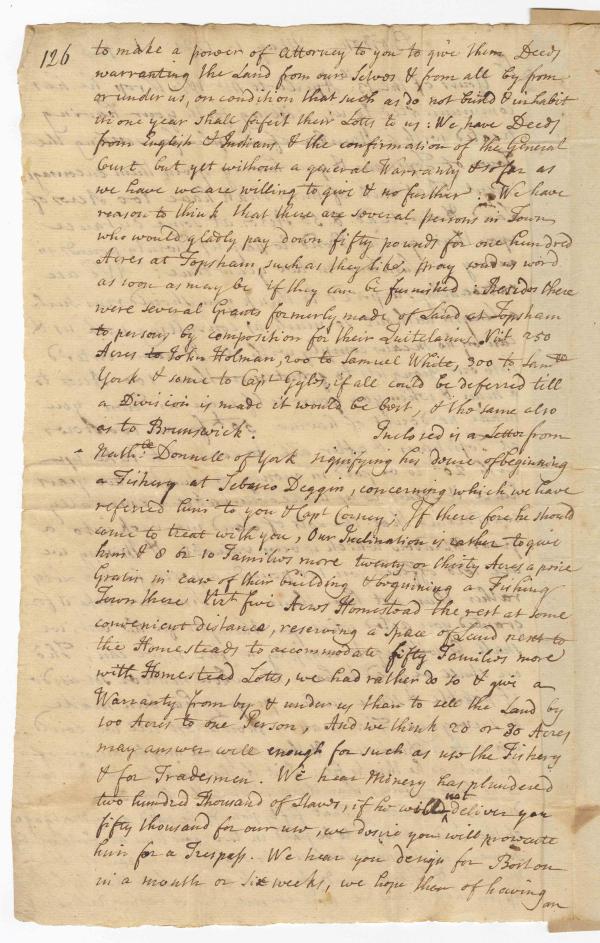 126
to make a power of Attorney to you to give them Deeds
warranting the Land from our Selves & from all by from
or under us, on condition that such as do not build & inhabit
in one year shall forfeit their Lotts to us: We have Deeds
from English & Indians, & the confirmation of the General
Court, but yet without a general Warranty & so far as
we have we are willing to give & no further: We have
reason to think that there are several persons in Town
who would gladly pay down fifty pounds for one hundred
Acres at Topsham, such as they like, pray send us word
as soon as may be if they can be furnished: Besides there
were several Grants formerly made of Land at Topsham
to persons by composition for their Quitclaims Vizt 250
Acres to John Holman, 200 to Samuel White, 300 to Samll
York & some to Capt Gyles, if all could be deferred till
a Division is made it would be best, & the same also
as to Brunswick. Inclosed is a Letter from
Nathll Donnell of York signifying his desire of beginning
a Fishery at Sebasco Deggin, concerning which we have
referred him to you & Capt ; If therefore he should
come to treat with you, Our Inclination is rather to give
him & 8 or 10 Families more twenty or thirty Acres a piece
Gratis in case of their building & beginning a Fishing
Town there Vizt five Acres Homestead the rest at some
convenient distance, reserving a Space of Land next to
the Homesteads to accommodate fifty Families more
with Homestead Lotts, we had rather do so & give a
Warranty from by & under us than to sell the Land by
100 Acres to one Person, And we think 20 or 30 Acres
may answer well enough for such as use the Fishery
& for Tradesmen. We hear Minery has plundered
two hundred Thousand of Staves, if he will not deliver you
fifty thousand for our use, we desire you will prosecute
him for a Trespass. We hear you design for Boston
in a month or Six weeks, we hope then of having
an